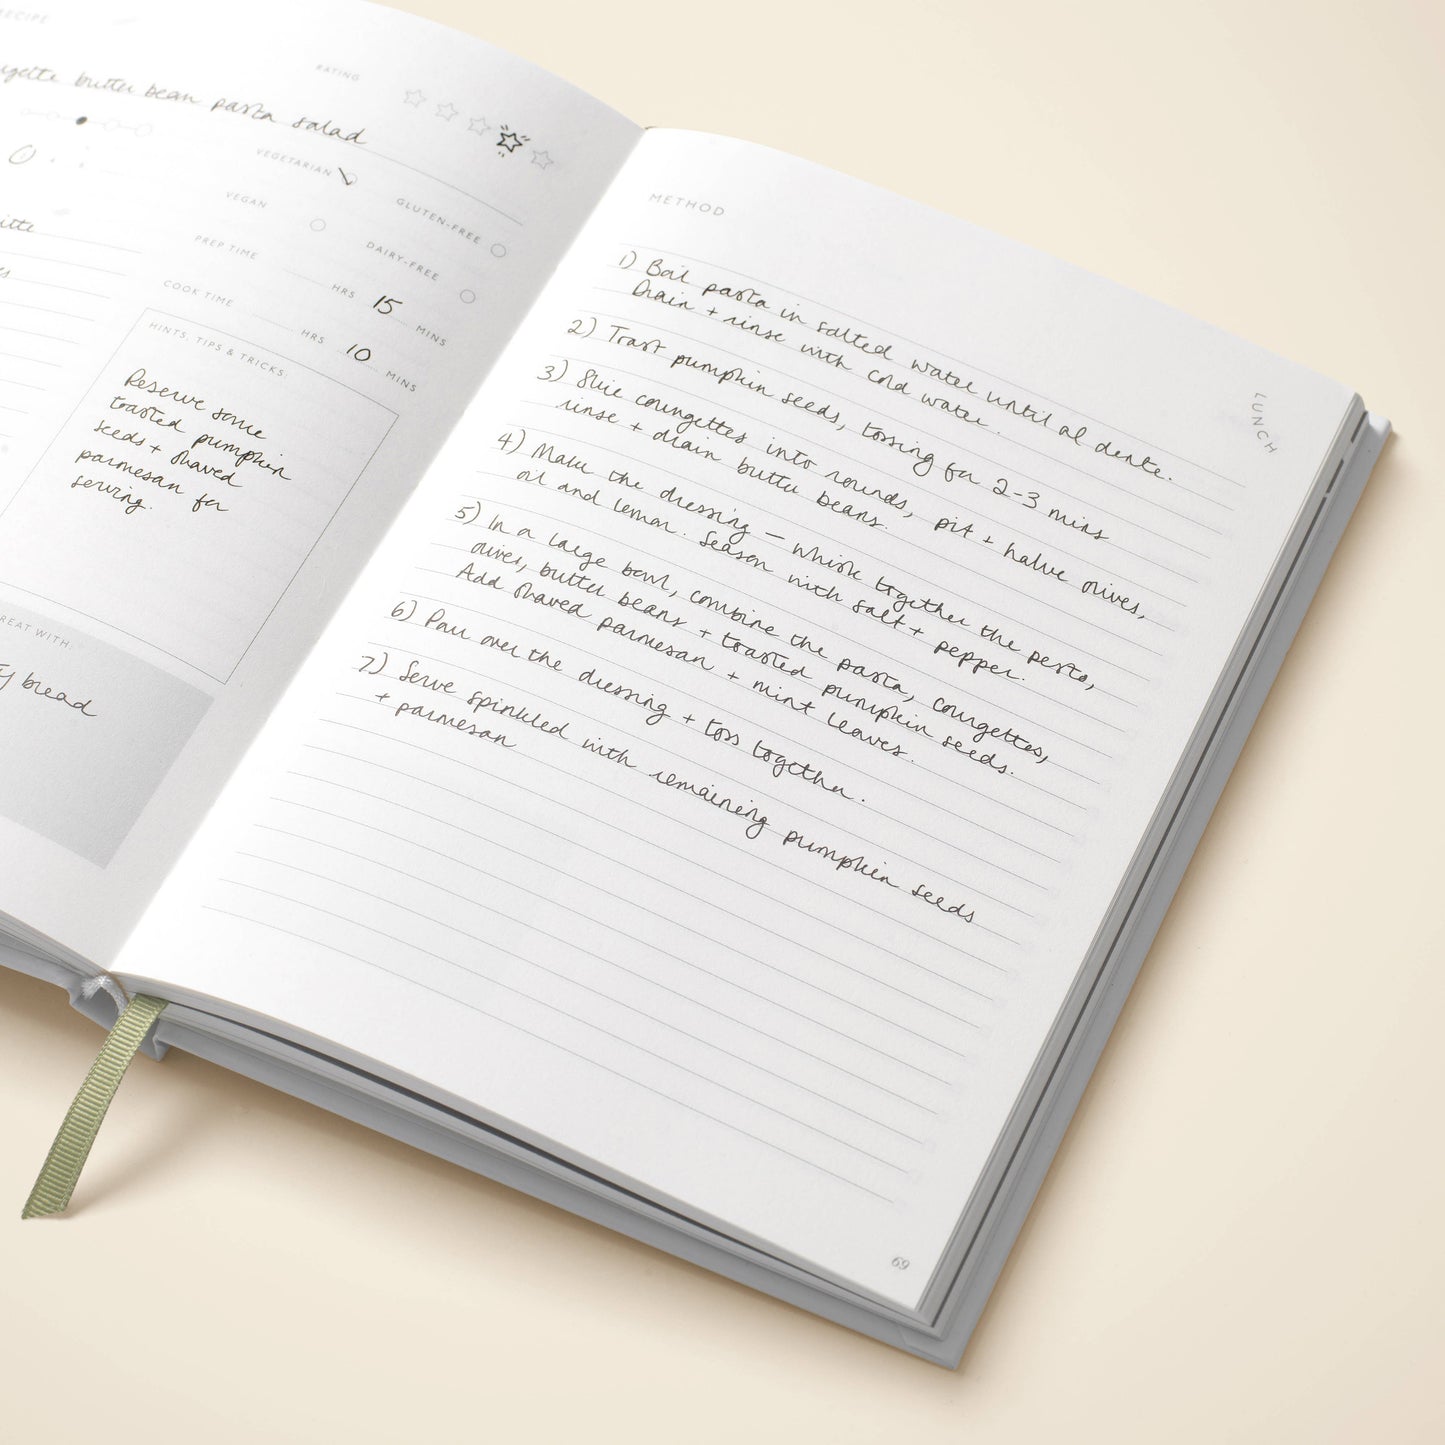 RECIPE
butter bean pasta salad
RATING
VEGETARIAN
GLUTEN-FREE
VEGAN
DAIRY-FREE
PREP TIME HRS 15 MINS
COOK TIME HRS 10 MINS
HINTS, TIPS & TRICKS
Reserve some
toasted pumpkin
seeds + shaved
parmesan for
serving.
WITH
bread
METHOD
1) Boil pasta in salted water until al dente.
Drain + rinse with cold water.
2) Toast pumpkin seeds, tossing for 2-3 mins
3) Slice courgettes into rounds, pit + halve olives,
rinse + drain butter beans.
4) Make the dressing – whisk together the pesto,
oil and lemon. Season with salt + pepper.
5) In a large bowl, combine the pasta, courgettes,
olives, butter beans + toasted pumpkin seeds.
Add shaved parmesan + mint leaves.
6) Pour over the dressing + toss together.
7) Serve spinkled with remaining pumpkin seeds
+ parmesan
LUNCH
69